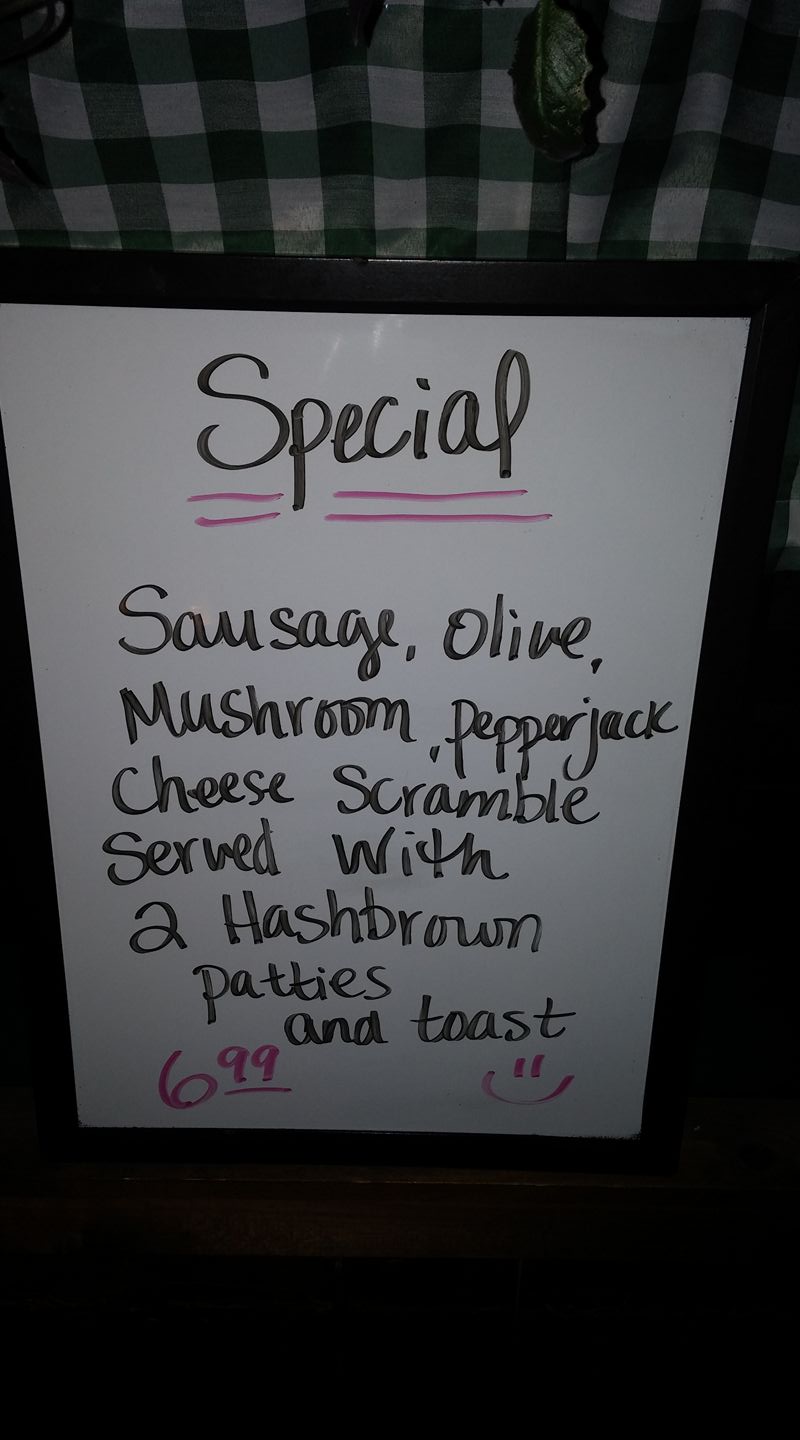 Special
Sausage, Olive,
Mushroom, Pepperjack
Cheese Scramble
Served With
2 Hashbrown
patties
and toast
6 99